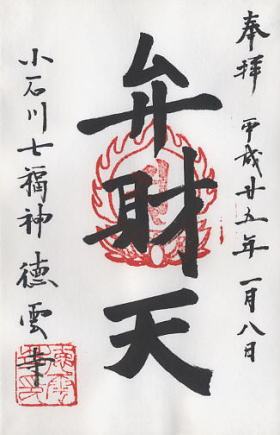 奉拝 平成廿五年 一月八日
弁財天
小石川七福神 徳雲寺